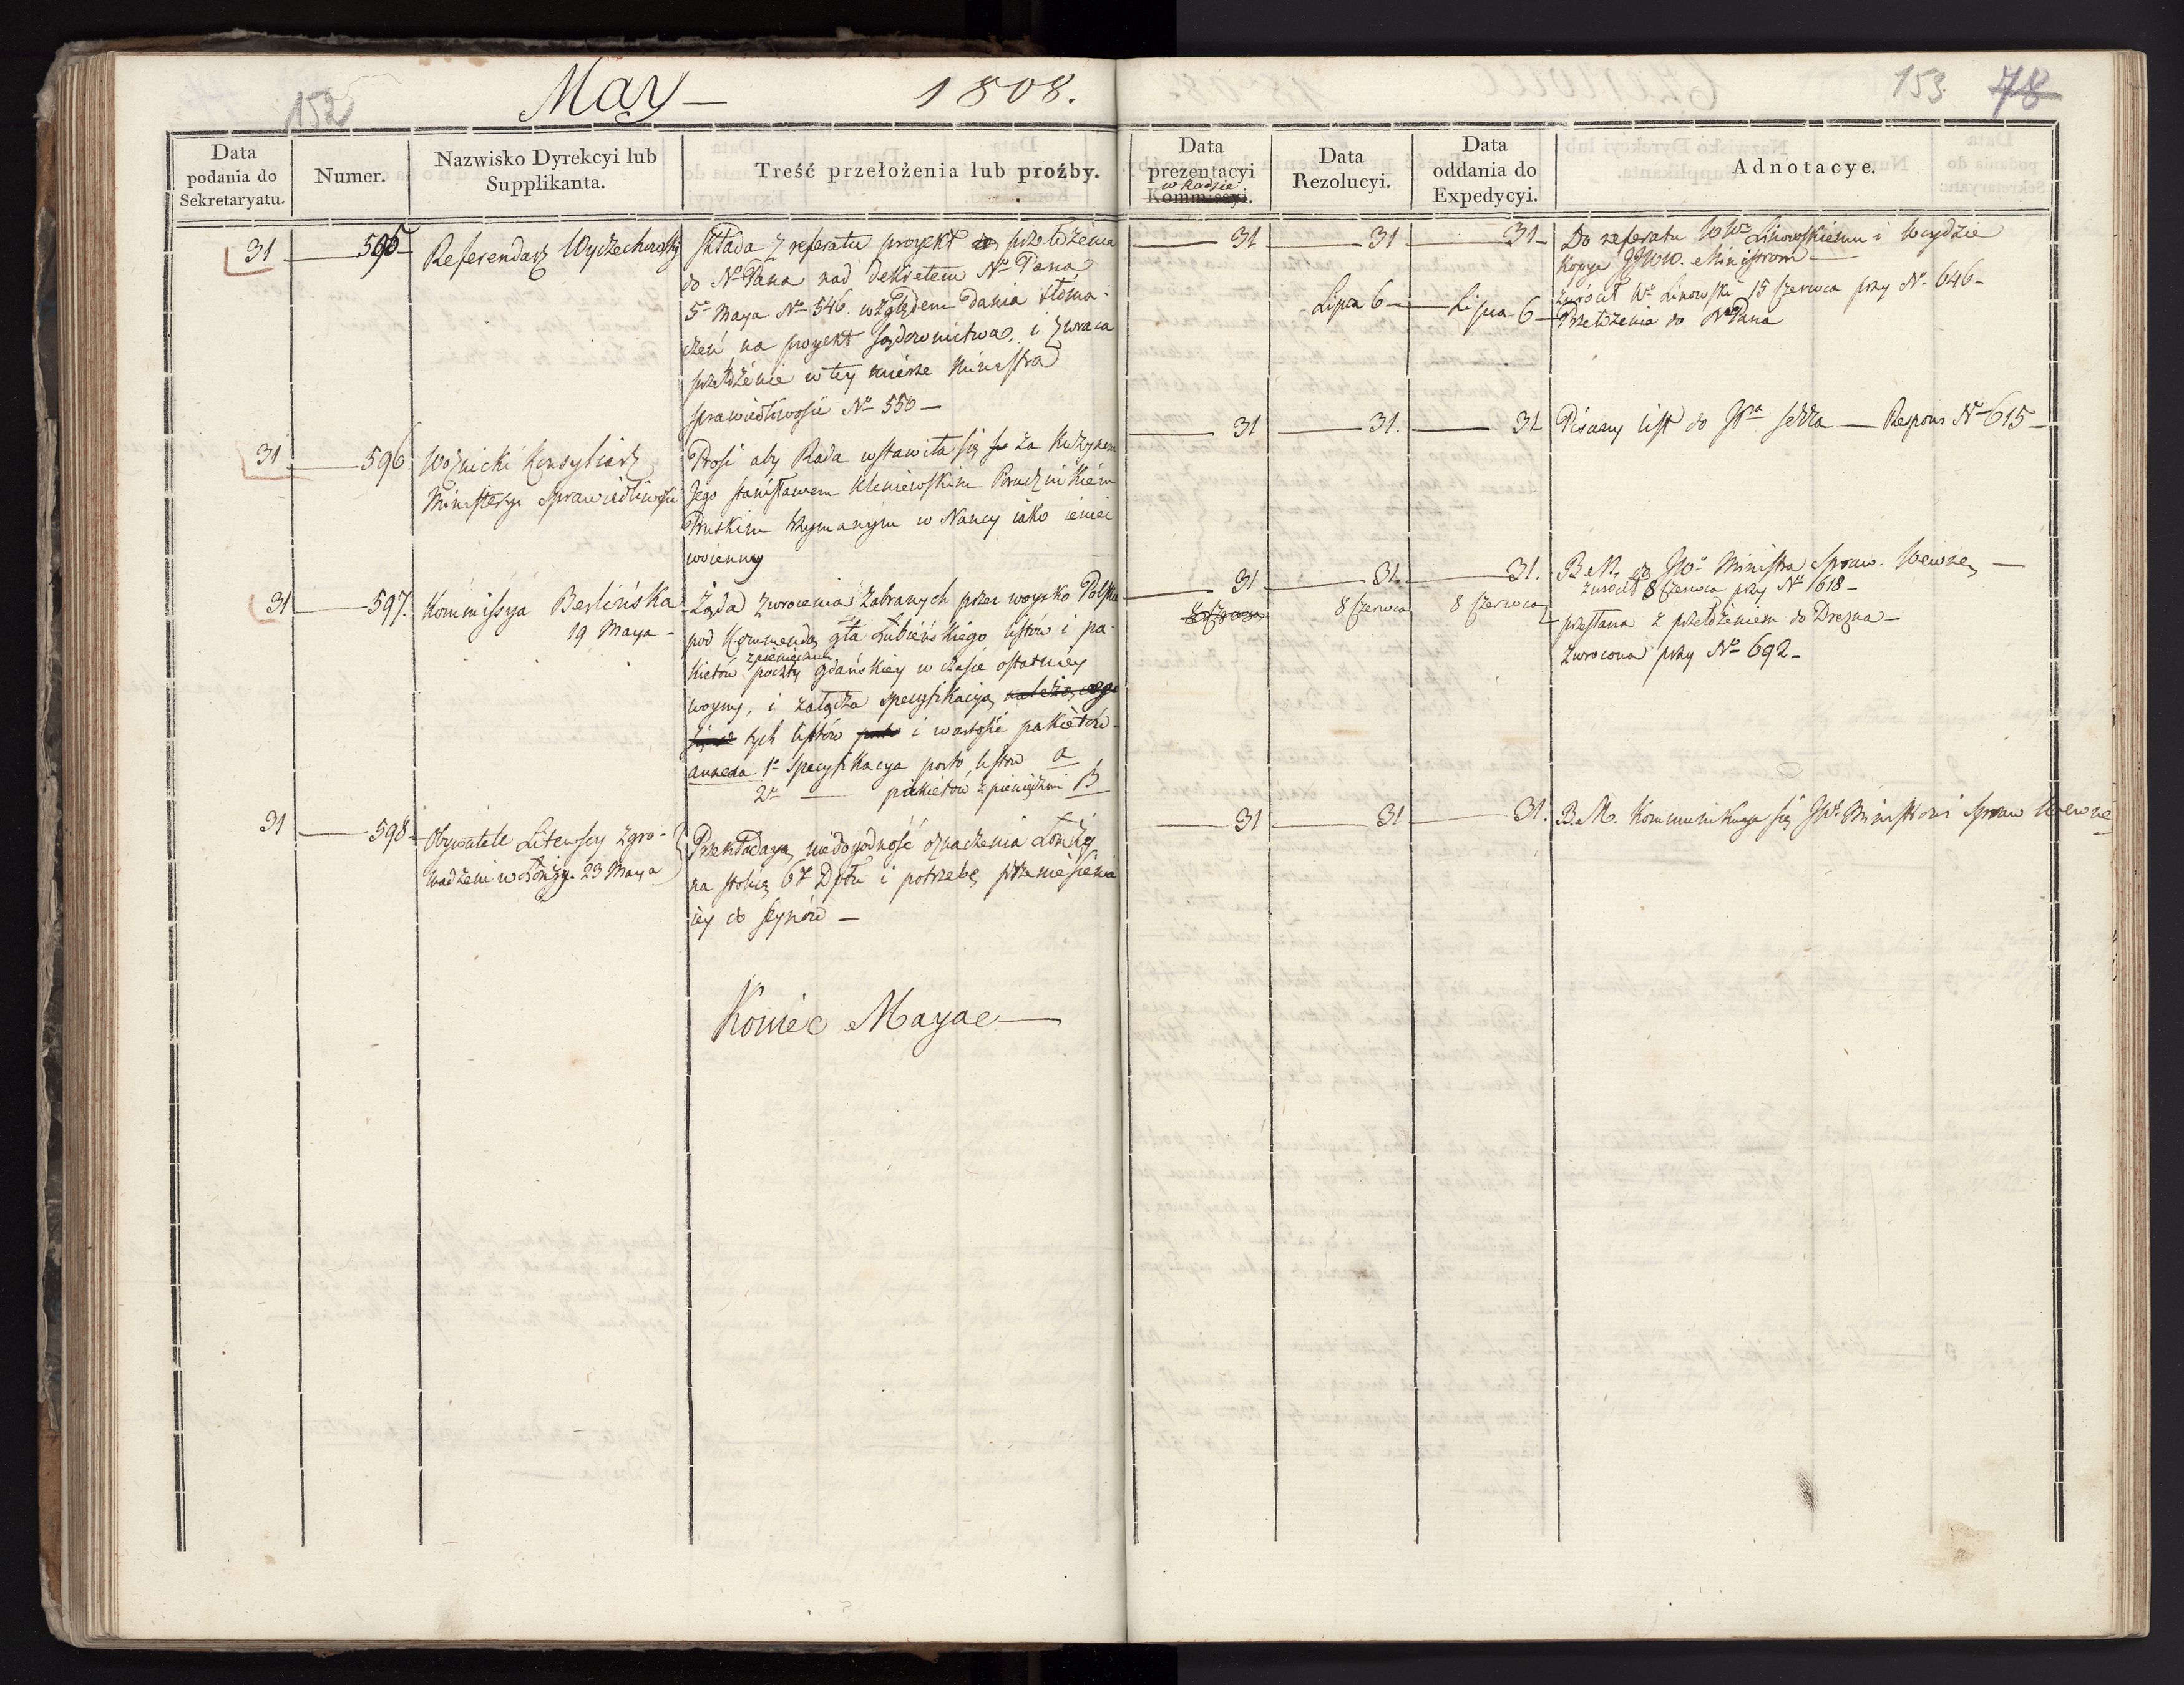 152
May — 1808.
153. 78
Data podania do Sekretaryatu.
Numer.
Nazwisko Dyrekcyi lub Supplikanta.
Treść przełożenia lub proźby.
Data prezentacyi w Radzie Kommissyi.
Data Rezolucyi.
Data oddania do Expedycyi.
Adnotacye.
31 — 595 —
Referendarz Wyczechowski
Składa z referatu proiekt przełożenia
do Nº Pana nad Dekretem Nº Pana
5º Maya Nº 546. względem dania tłoma-
czeń na proyekt sądownictwa, i zwraca
przełożenie w tey mierze Ministra
sprawiedliwości Nº 550 —
— 31 — 31 — 31 —
Do referatu WWº Linowskiemu i
kopye JJWW. Ministrom —
zwrócił Wº Linowski 15 Czerwca przy Nº 646 —
Lipca 6 — Lipca 6 —
Przełożenie do Nº Pana
31 — 596
Woźnicki Konsyliarz
Ministeryi Sprawiedliwości
Prosi aby Rada wstawiła się za Kuzynem
Jego Stanisławem Kleniewskim Porucznikiem
Pruskim trzymanym w Nancy iako ieniec
woienny
— 31 — 31. — 31
Pisany list do JPna Serra — Respons Nº 615 —
31 — 597.
Kommissya Berlińska
19 Maya —
Żąda zwrocenia zabranych przez woysko Polskie
pod Kommendą Gła Łubieńskiego listów i pa-
kietów z pieniędzmi poczty Gdańskiey w czasie ostatniey
woyny, i załącza specyfikacyą
tych listów i wartości pakietów —
annexa 1º Specyfikacya porto listów a
2º — pakietów z pieniędzmi B
— 31 — 31. — 31.
B.M. do JWº Ministra Spraw. Wewnę. —
zwrócił 8 Czerwca przy Nº 618 —
8 Czerwca 8 Czerwca 8 Czerwca
przesłana z przełożeniem do Drezna —
zwrocona przy Nº 692 —
31 — 598 —
Obywatele Litewscy zgro-
madzeni w Łomży 23 Maya
Przekładaią niedogodność oznaczenia Łomży
na stolicę 6º Dptu i potrzebę przeniesienia
iey do Seynów —
— 31 — 31 — 31.
B.M. Kommunikuie się JWº Ministrowi Spraw Wewnę
Koniec Maya —